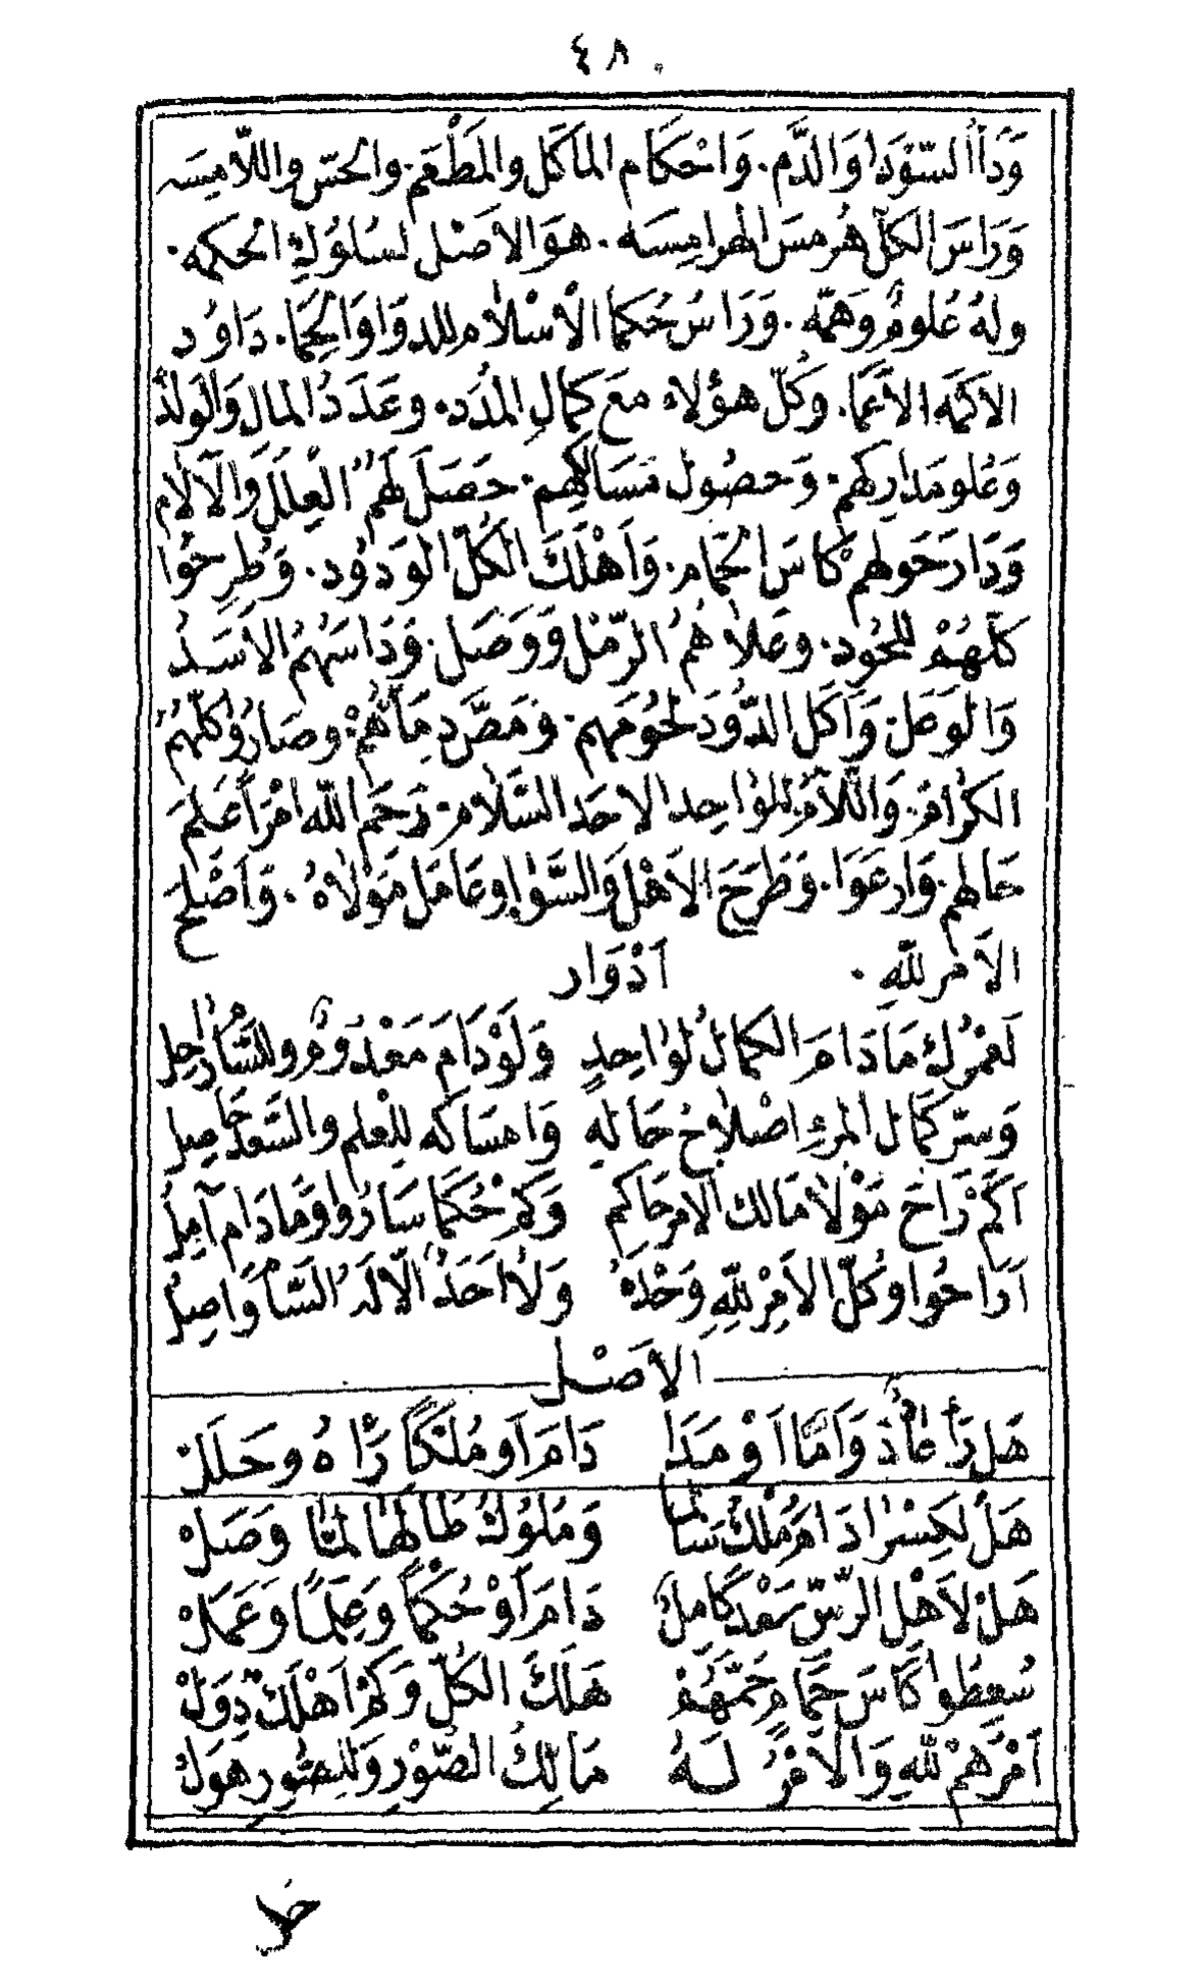 ٤٨٠
وَدَاأ السّوْدَا وَالدَّم. وَاحْكَام الماكَل والمَطْعَم. والحسّ واللامِسَه
وَرَاسَ الكلّ هُرمسَ الهرامِسَه. هوَ الاصْل لسُلوُكِ الحكمه.
ولهُ عُلومٌ وَهمّه. وَرَاسُ حُكما الأسْلام للدوَا وَالحِمَا. دَاوُد
الاكمَه الاعمَا. وَكلّ هؤلاء معَ كمالِ المُدَد. وعَدَدُ المال وَالوَلد
وَعُلو مَدَارِكهم. وَحصُول مَسَالكِهم. حَصَلَ لهَمُ العِلَلَ وَالآلام
وَدَارَ حَولهم كاسَ الحمَام. وَاهْلَكَ الكُلّ الوَدوُد. وَطُرِحوُا
كلّهُمْ للحُود. وعَلاهُمُ الرّمْل وَوَصَل. وَدَاسَهُمُ الاسَدُ
وَالوَعَل. وَآكَلَ الدُّودَ لحُومَهم. وَمَصَّر دِمَآهُمْ. وصَارُو كلّهُم
الكرٰامَ. وَاللّامُ للوٰاحِد الاحَد السَّلام. رَحِمَ اللّه امْرَأ عَلِمَ
حَالهم. وَارعَوَا. وَطَرَحَ الاهْل وَالسّوٰا وعَامَل مَوْلاهُ. وَاصْلَحَ
الاَمر للّهِ. اَدْوَار
لَعَمْرُك مَا دَامَ الكمالُ لوٰاحِدٍ وَلَوْ دَامَ مَعْدُومُ وللسَّآمِ رٰاحِل
وَسرّ كمَال المرءِ اصْلاحُ حَالهِ وَامسَاكه لِلعلم والسَّعد حَاصِل
اكَمْ رَاحَ مَوْلا مَالك الامر حَاكم وَكمْ حُكمَا سَارُوا وَمَا دَام آمِلُ
آرَاحُوا وَكُلّ الاَمْرِ للّهِ وَحْدَهُ وَلا احَدُ الّا لَهُ السَّأ وَاصِلُ
الاصْل
هَل رَأ عَادٌ وَامَّا اَوْ مَدَا دَامَ اَو مُلْكاً رَآهُ وحَلَلْ
هَلْ لكِسْرٰا دَامَ مُلْكٌ سَالماً وَمُلوُكٌ طَالهَا لمّا وَصَلْ
هَلْ لاَهْل الرّسّ سَعْدٌ كَامِلٌ دَامَ اَوْ حُكماً وَعِلماً وَعَمَلْ
سُعِطُوا كاسَ حِمَامٍ حَمّهُمْ هَلَكَ الكُلّ وَكمْ اَهْلَكَ دِوَلْ
اَمْرُهمْ للّهِ وَالاَمْرُ لَهُ مَالِكُ الصّوْرِ وَللصُّورِ هوَلْ